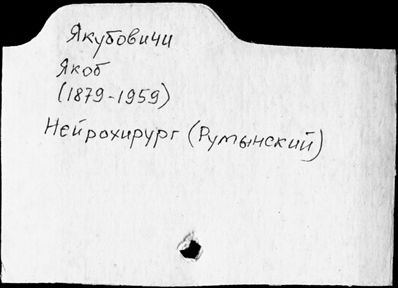 Якубовичи
Якоб
(1879-1959)
Нейрохирург (Румынский)